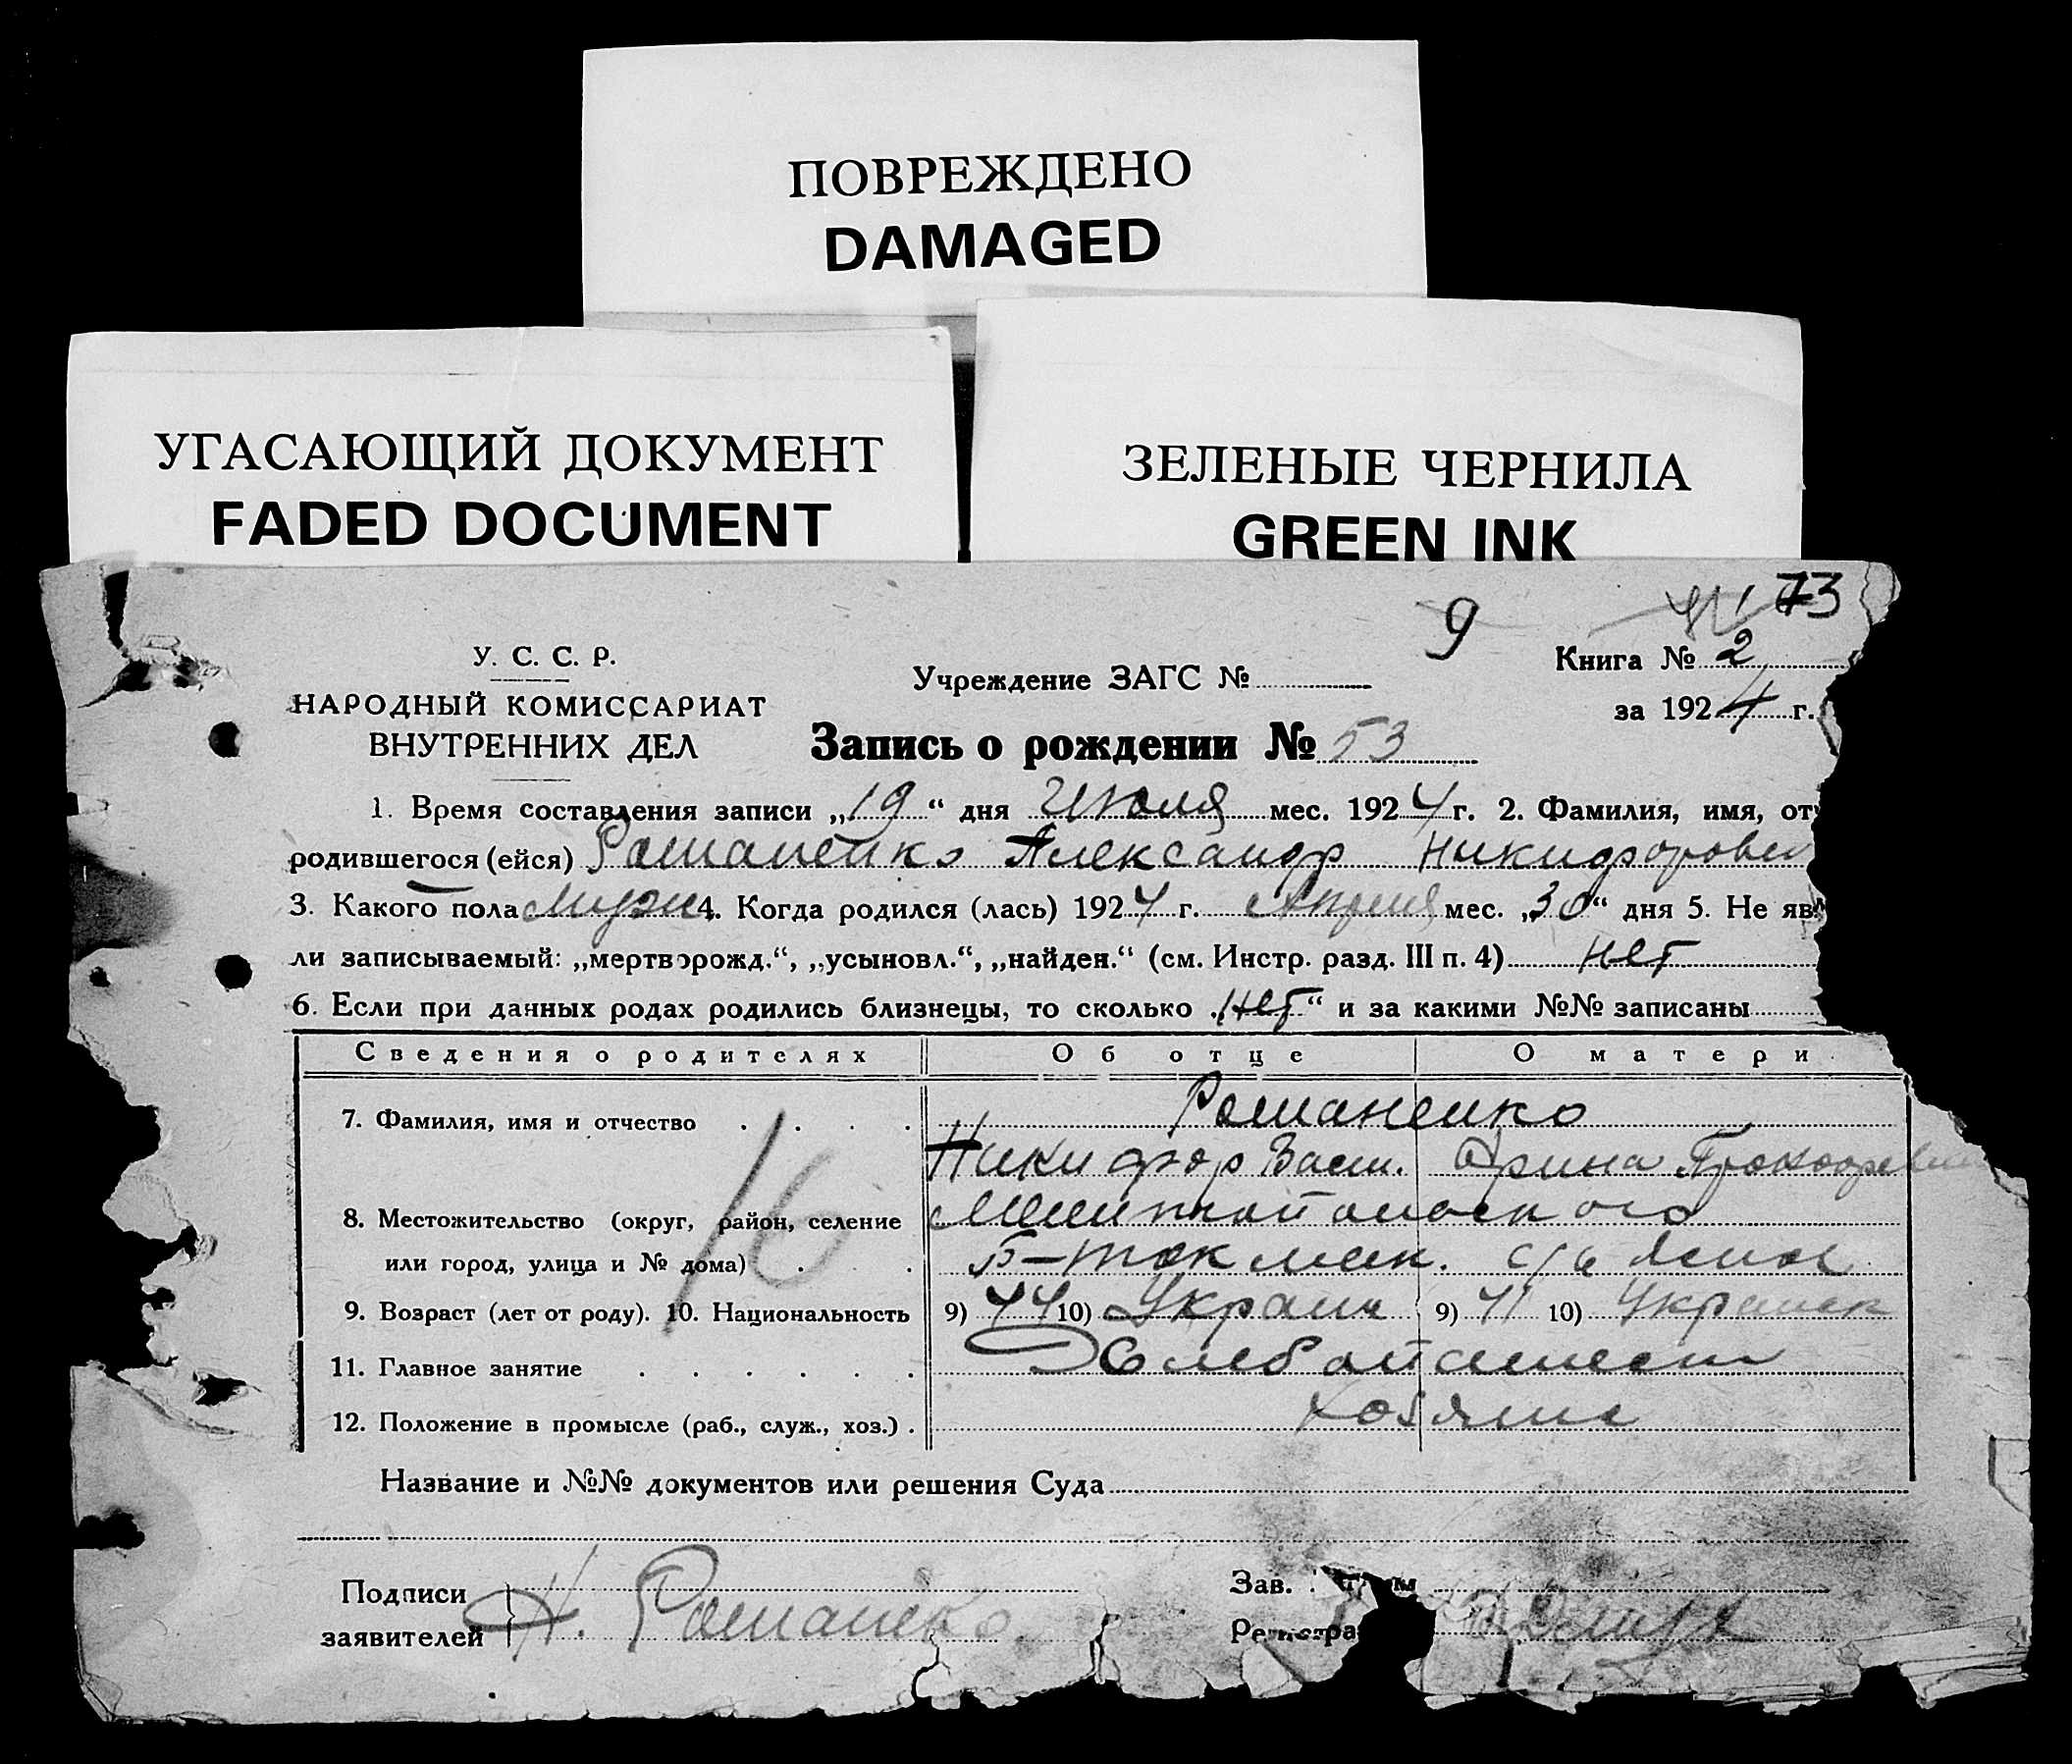 ПОВРЕЖДЕНО
DAMAGED
УГАСАЮЩИЙ ДОКУМЕНТ
FADED DOCUMENT
ЗЕЛЕНЫЕ ЧЕРНИЛА
GREEN INK
9
73
У. С. С. Р.
НАРОДНЫЙ КОМИССАРИАТ
ВНУТРЕННИХ ДЕЛ
Учреждение ЗАГС №
Книга № 2
за 1924 г.
Запись о рождении № 53
1. Время составления записи „19“ дня Июля мес. 1924 г. 2. Фамилия, имя, от
родившегося (ейся) Романенко Александр Никифорович
3. Какого пола Мужс 4. Когда родился (лась) 1924 г. Апреля мес. „30“ дня 5. Не яв
ли записываемый: „мертворожд.“, „усыновл.“, „найден.“ (см. Инстр. разд. III п. 4) нет
6. Если при данных родах родились близнецы, то сколько „нет“ и за какими №№ записаны
Сведения о родителях Об отце О матери
7. Фамилия, имя и отчество Романенко
Никифор Васил. Арина Прокофьев
8. Местожительство (округ, район, селение
или город, улица и № дома) Б-Токмак. с/с
9. Возраст (лет от роду). 10. Национальность 9) 44 10) Украин 9) 41 10) Украинк
11. Главное занятие Хлебопашест
12. Положение в промысле (раб., служ., хоз.) Хозяин
16
Название и №№ документов или решения Суда
Подписи
заявителей Н. Романенко.
Зав.
Регистра